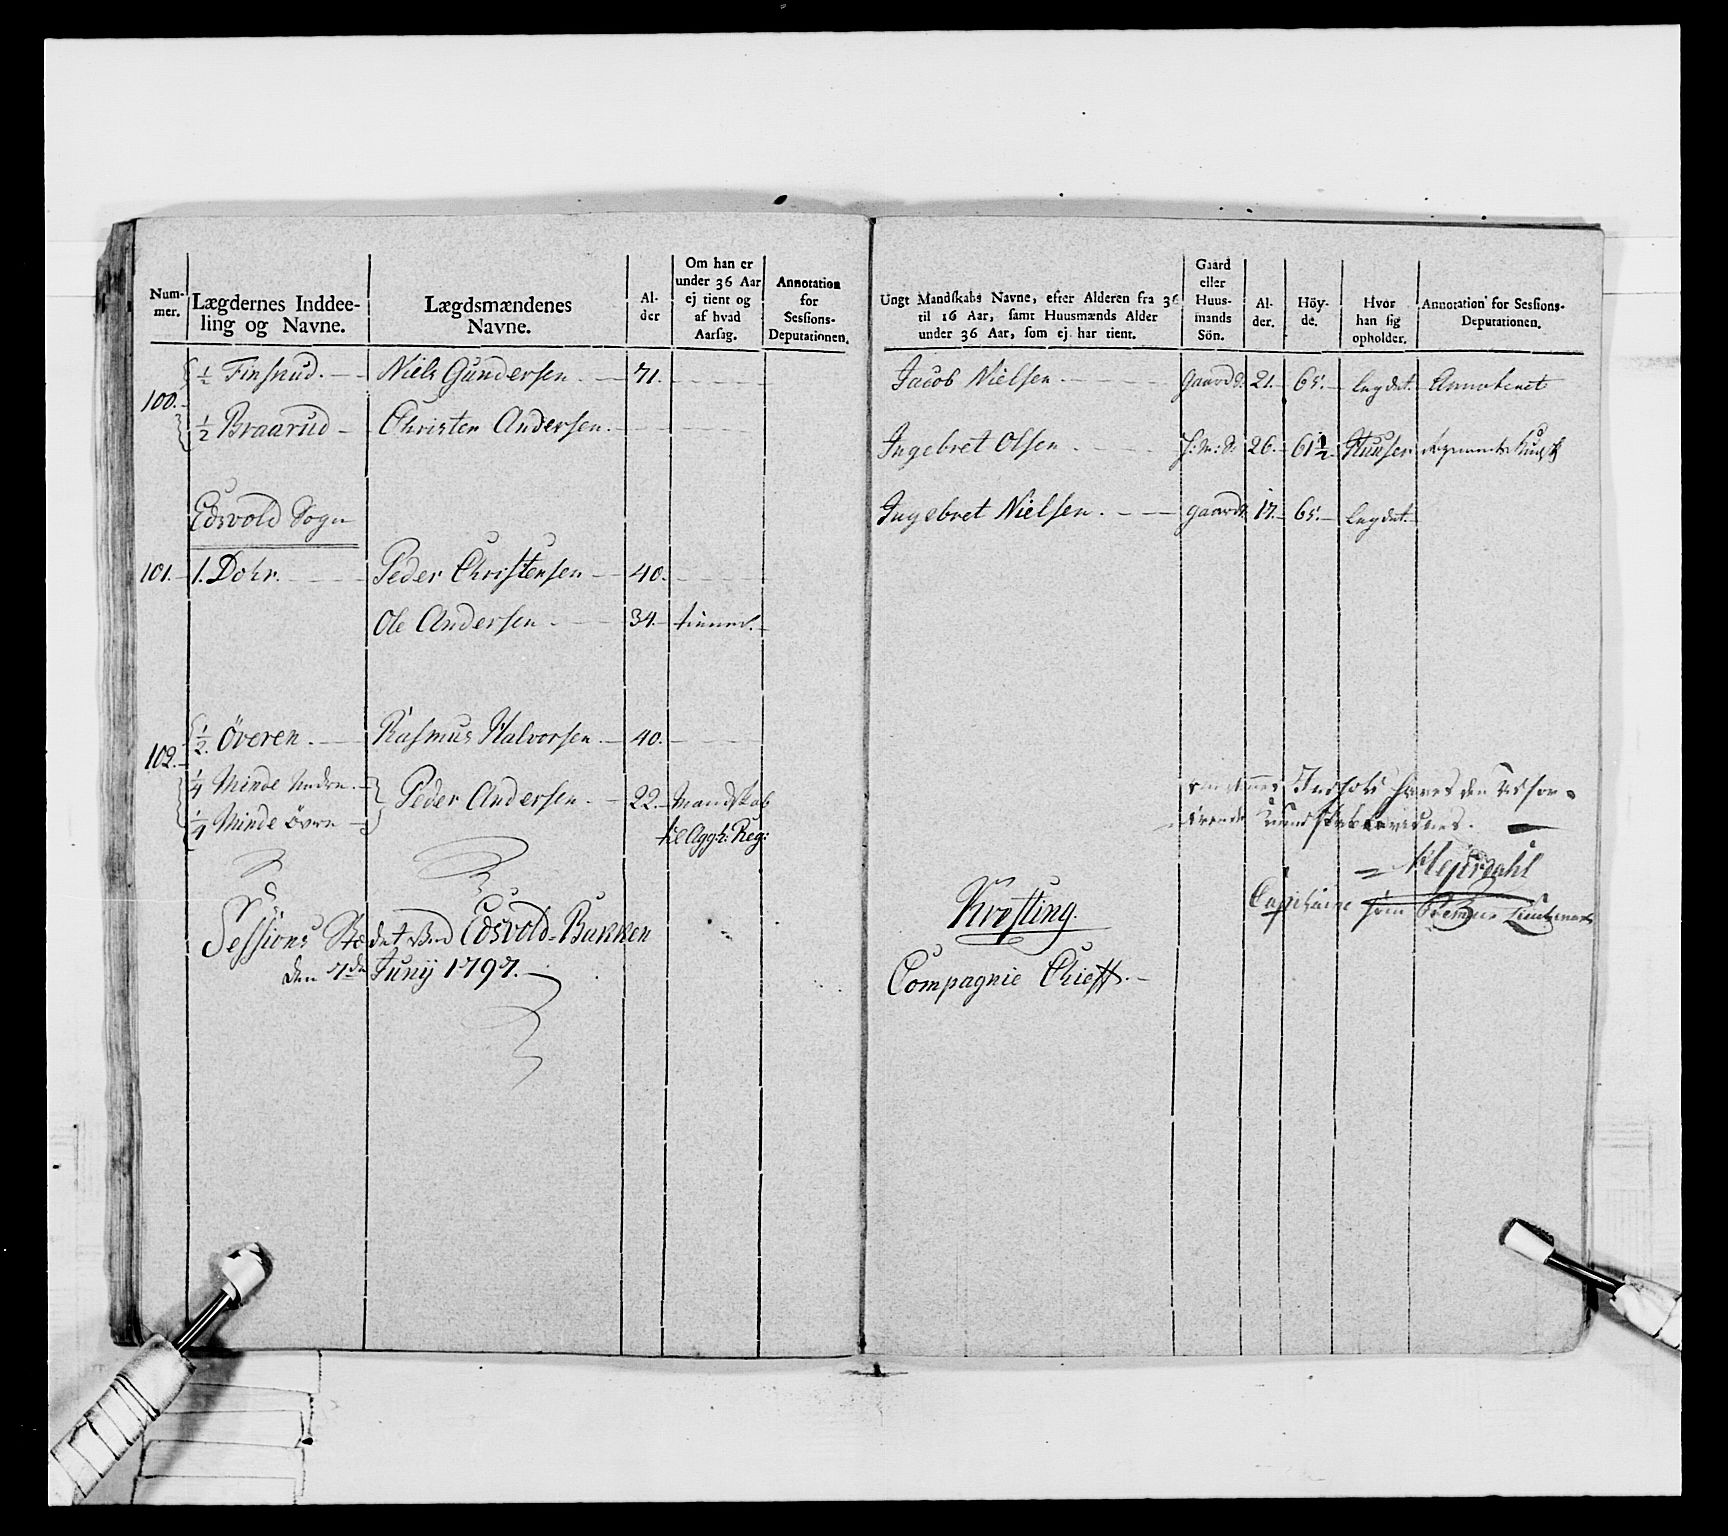 Num-
mer.
Lægdernes Inddee-
ling og Navne.
Lægdsmændenes
Navne.
Al-
der
Om han er
under 36 Aar
ej tient og
af hvad
Aarsag.
Annotation
for
Sessions-
Deputationen.
100.
1/2 Finsrud. Niels Gundersen 71.
1/2 Braarud Christen Andersen.
Edsvold Sogn
101. 1. Dohr. Peder Christensen 40.
Ole Andersen 34. tienne.
102.
1/2. Överen. Rasmus Halvorsen 40.
1/4 Minde Nedre.
Peder Andersen 22. Mandskab
1/4 Minde Övre
til Aggh: Reg:
Sessions Stædet ved Edsvold-Bakken
den 7de Junij 1797.
Ungt Mandskabs Navne, efter Alderen fra 36
til 16 Aar, samt Huusmænds Alder
under 36 Aar, som ej har tient.
Gaard
eller
Huus-
mands
Sön.
Al-
der.
Höy-
de.
Hvor
han sig
opholder.
Annotation for Sessions-
Deputationen.
Jacob Nielsen gaardS. 21. 65. legdet. Annoteret
Ingebret Olsen H:M:S. 26. 61 1/2
Ingebret Nielsen. gaardS. 17. 65. legdet.
Indhold haves den
Krefting.
Capitaine som
Compagnie Chieff.